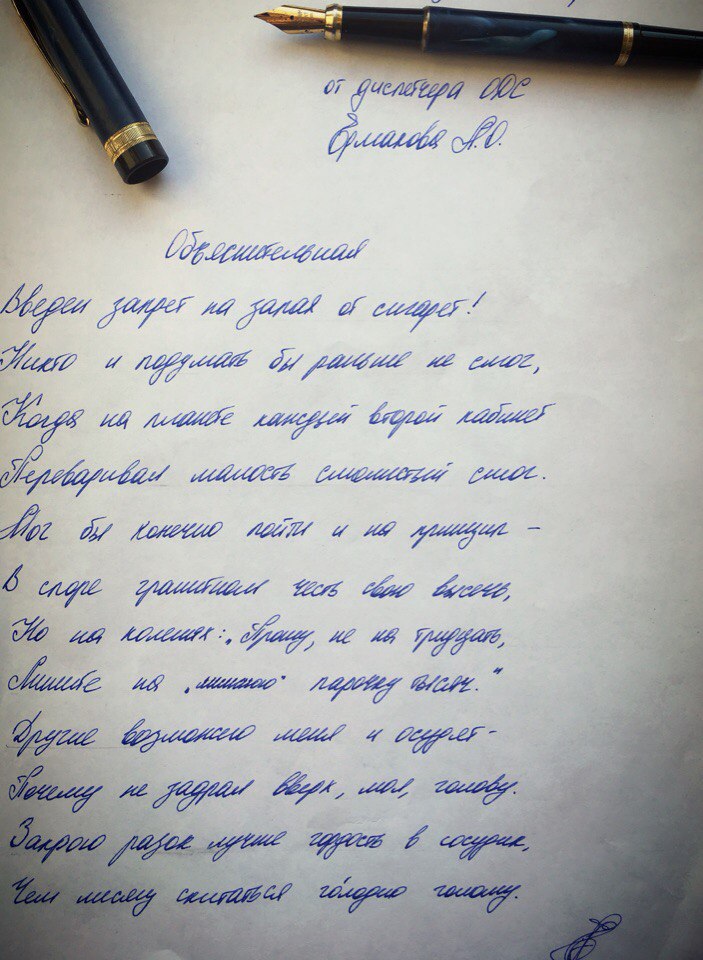 от диспетчера ОДС
Ермакова А.О.
Объяснительная
Введен запрет на запах от сигарет!
Никто и подумать бы раньше не смог,
Когда на планёбе каждый второй кабинет
Переваривал малость смолистый смог.
Мог бы конечно пойти и на принцип –
В споре гранитном честь свою высечь,
Но на коленях: „Прошу, не на тридцать,
Лишите на парочку тысяч."
Другие возможно меня и осудят-
Почему не задрал вверх, мол, голову.
Закрою разок лучше гордость в сосудик,
Чем месяц скитаться го́лодно голому.